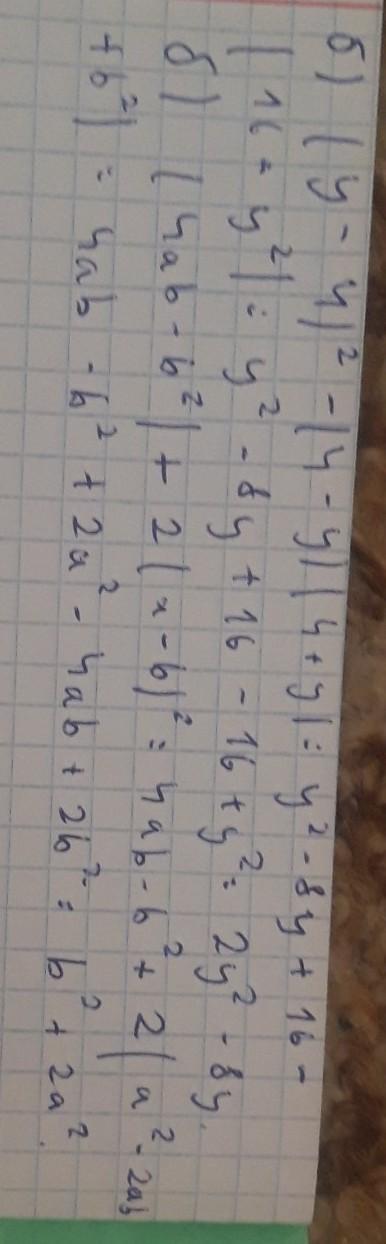 б) (y - 4)² - (4 - y)(4 + y) = y² - 8y + 16 -
(16 - y²) = y² - 8y + 16 - 16 + y² = 2y² - 8y.
б) (4ab - b²) + 2(a - b)² = 4ab - b² + 2(a² - 2ab
+ b²) = 4ab - b² + 2a² - 4ab + 2b² = b² + 2a².